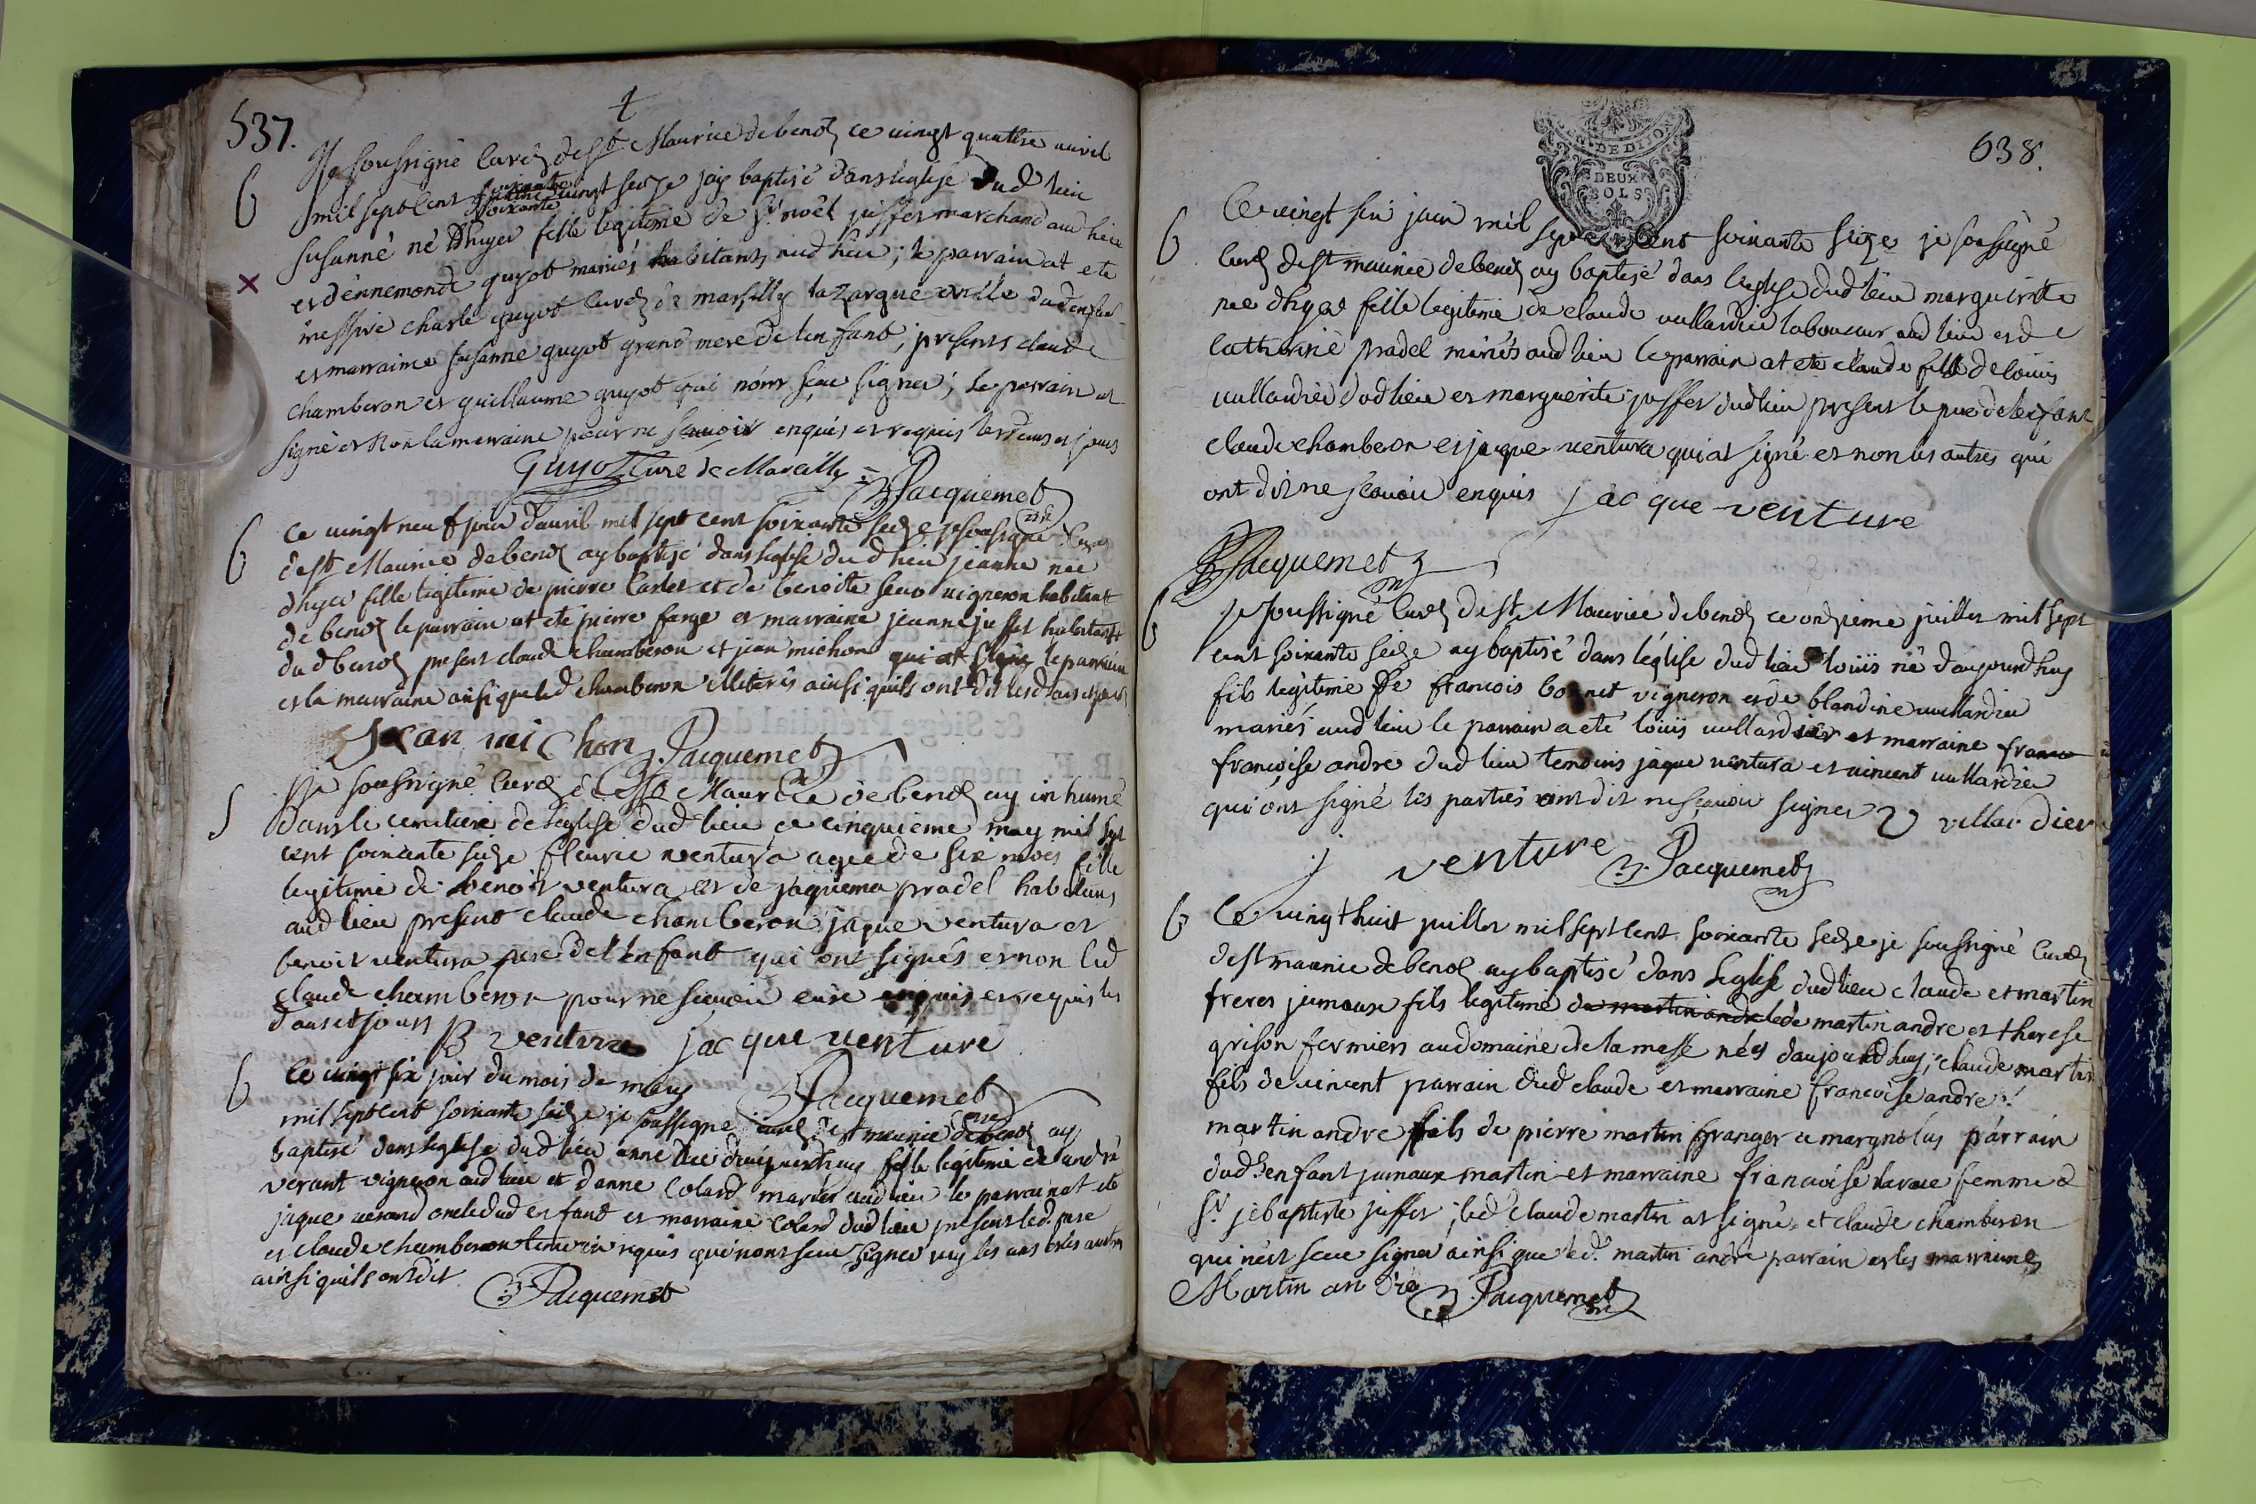 537.
t
B
Je soussigné curé de St Maurice de benol ce vingt quattre avril
mil sept cent soixante seize jay baptisé dans leglise dud lieu
susanne né dhyer fille legitime de Sr noël juffet marchand aud lieu
et dennemonde guyot mariés habitants aud lieu; le parrain at ete
messire charle guyot curé de marsilly oncle dud enfant
et marraine susanne guyot grand mere de lenfant; presents claude
chamberon et guillaume guyot qui n'ont sceu signer; le parrain at
signé et non la marraine pour ne sçavoir enquis et requis les dans et jours
Guyot Curé de Marcilly
Jacquemet
curé
B
ce vingt neuf jour d'avril mil sept cent soixante seize je soussigné Curé
de St Maurice de benol ay baptisé dans leglise dud lieu jeanne née
dhyer fille legitime de pierre carlet et de benoite vigneron habitant
de benol le parrain at eté pierre farge et marraine jeanne juffet habitants
dud benol present claude chamberon et jean michon qui at signé le parrain
et la marraine ainsi que led chamberon illiterés ainsi quils ont dit les dans et jours
Jean michon Jacquemet
S
Je soussigné curé de St Maurice de benol ay inhumé
dans le cimetiere de leglise dud lieu ce cinquieme may mil sept
cent soixante seize fleurie ventura agée de six mois fille
legitime de benoit ventura et de jaquema pradel habitans
aud lieu present claude chamberon jaque ventura et
benoit ventura pere de lenfant qui ont signés et non led
claude chamberon pour ne sçavoir enquis et requis les
dans et jours B venture jacque venture
Jacquemet
curé
B
Ce vingt six jour du mois de may
mil sept cent soixante seize je soussigné curé de St maurice de benol ay
baptisé dans leglise dud lieu anne née daujourdhuy fille legitime de andré
verant vigneron aud lieu et danne Colard mariés aud lieu le parrain at ete
jaque verand oncle dud enfant et marraine Colard dud lieu present led pere
et claude chamberon temoin requis qui nont sceu signer ny les uns ny les autres
ainsi quils ont dit
Jacquemet
638.
DE DIJON
DEUX
SOLS
B
Ce vingt six juin mil sept cent soixante seize je soussigné
curé de St maurice de benol ay baptisé dans leglise dud lieu marguerite
née dhyer fille legitime de claude vullardier laboureur aud lieu et de
catherine pradel mariés aud lieu le parrain at ete claude fils de louis
vullardier dud lieu et marguerite juffet dud lieu present le pere de lenfant
claude chamberon et jaque ventura qui at signé et non les autres qui
ont dit ne sçavoir enquis jacque venture
Jacquemet
B
Je soussigné Curé de St Maurice de benol ce onzieme juillet mil sept
cent soixante seize ay baptisé dans l'église dud lieu louis né daujourdhuy
fils légitime de francois bonnet vigneron et de blandine vullardier
mariés aud lieu le parrain a eté louis vullardier et marraine franco
françoise andre dud lieu temoins jaque ventura et vincent vullardier
qui ont signé les parties ont dit ne sçavoir signer V vullar dier
j venture Jacquemet
B
Ce vingt huit juillet mil sept cent soixante seize je soussigné curé
de St maurice de benol ay baptisé dans leglise dud lieu claude et martin
freres jumeaux fils legitime de martin andre de martin andre et therese
grison fermiers au domaine de la masse nés daujourdhuy; claude martin
fils de vincent parrain dud claude et marraine francoise andre;
martin andre fils de pierre martin granger a margnolas parrain
dud enfant jumaux martin et marraine francoise larue femme de
Sr j baptiste juffet; led claude martin at signé et claude chamberon
qui n'est sceu signer ainsi que led. martin andre parrain et les marraines
Martin an dre Jacquemet